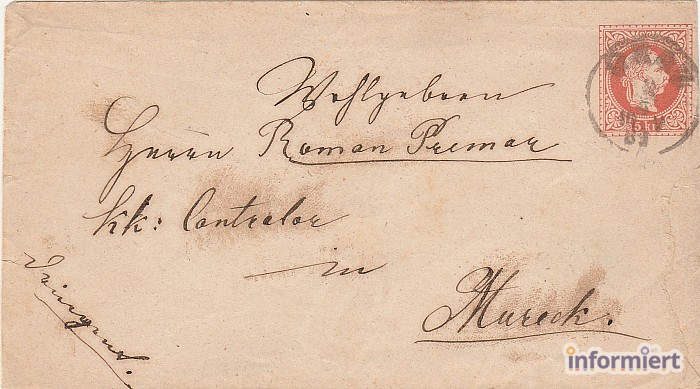 Wohlgeboren
Herrn Roman Premar
kk: Controlor
in
Mureck.
Dringend.
5 kr
informiert